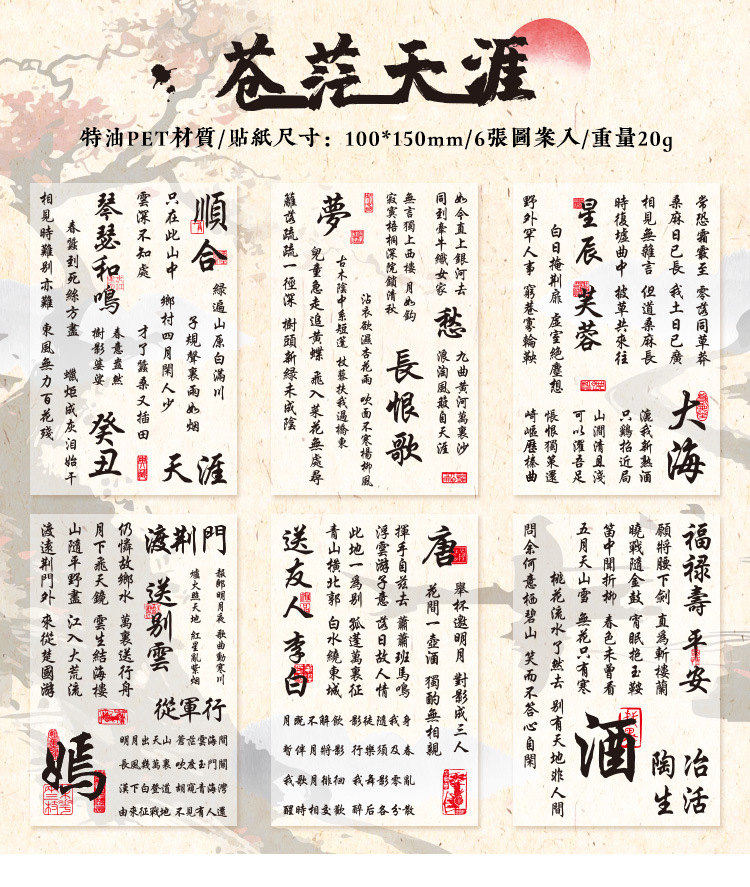 苍茫天涯
特油PET材質/貼紙尺寸：100*150mm/6張圖案入/重量20g
順合
只在此山中
雲深不知處
琴瑟和鳴
春蠶到死絲方盡
蠟炬成灰泪始干
相見時難别亦難
東風無力百花殘
綠遍山原白滿川
子規聲裏雨如烟
鄉村四月閑人少
才了蠶桑又插田
春意盎然
樹影婆娑
癸丑
天涯
如今直上銀河去
同到牽牛織女家
無言獨上西樓
月如鈎
寂寞梧桐深院鎖清秋
夢
籬落疏疏一徑深
樹頭新綠未成陰
兒童急走追黃蝶
飛入菜花無處尋
古木陰中系短篷
杖藜扶我過橋東
沾衣欲濕杏花雨
吹面不寒楊柳風
愁
九曲黃河萬裏沙
浪淘風簸自天涯
長恨歌
常恐霜霰至
零落同草莽
桑麻日已長
我土日已廣
相見無雜言
但道桑麻長
時復墟曲中
披草共來往
星辰
芙蓉
白日掩荆扉
虛室絶塵想
野外罕人事
窮巷寡輪鞅
大海
漉我新熟酒
只鷄招近局
山澗清且淺
可以濯吾足
悵恨獨策還
崎嶇歷榛曲
渡荆門
報郎明月夜
歌曲動寒川
爐火照天地
紅星亂紫烟
送别
雲
仍憐故鄉水
萬裏送行舟
月下飛天鏡
雲生結海樓
山隨平野盡
江入大荒流
渡遠荆門外
來從楚國游
從軍行
嫣
明月出天山
蒼茫雲海間
長風幾萬裏
吹度玉門關
漢下白登道
胡窺青海灣
由來征戰地
不見有人還
唐
舉杯邀明月
對影成三人
花間一壺酒
獨酌無相親
揮手自兹去
蕭蕭班馬鳴
浮雲游子意
落日故人情
此地一爲别
孤蓬萬裏征
青山橫北郭
白水繞東城
送友人
李白
月既不解飲
影徒隨我身
暫伴月將影
行樂須及春
我歌月徘徊
我舞影零亂
醒時相交歡
醉后各分散
福禄壽
平安
願將腰下劍
直爲斬樓蘭
曉戰隨金鼓
宵眠抱玉鞍
笛中聞折柳
春色未曾看
五月天山雪
無花只有寒
桃花流水了然去
别有天地非人間
問余何意栖碧山
笑而不答心自閑
酒
冶活
陶生